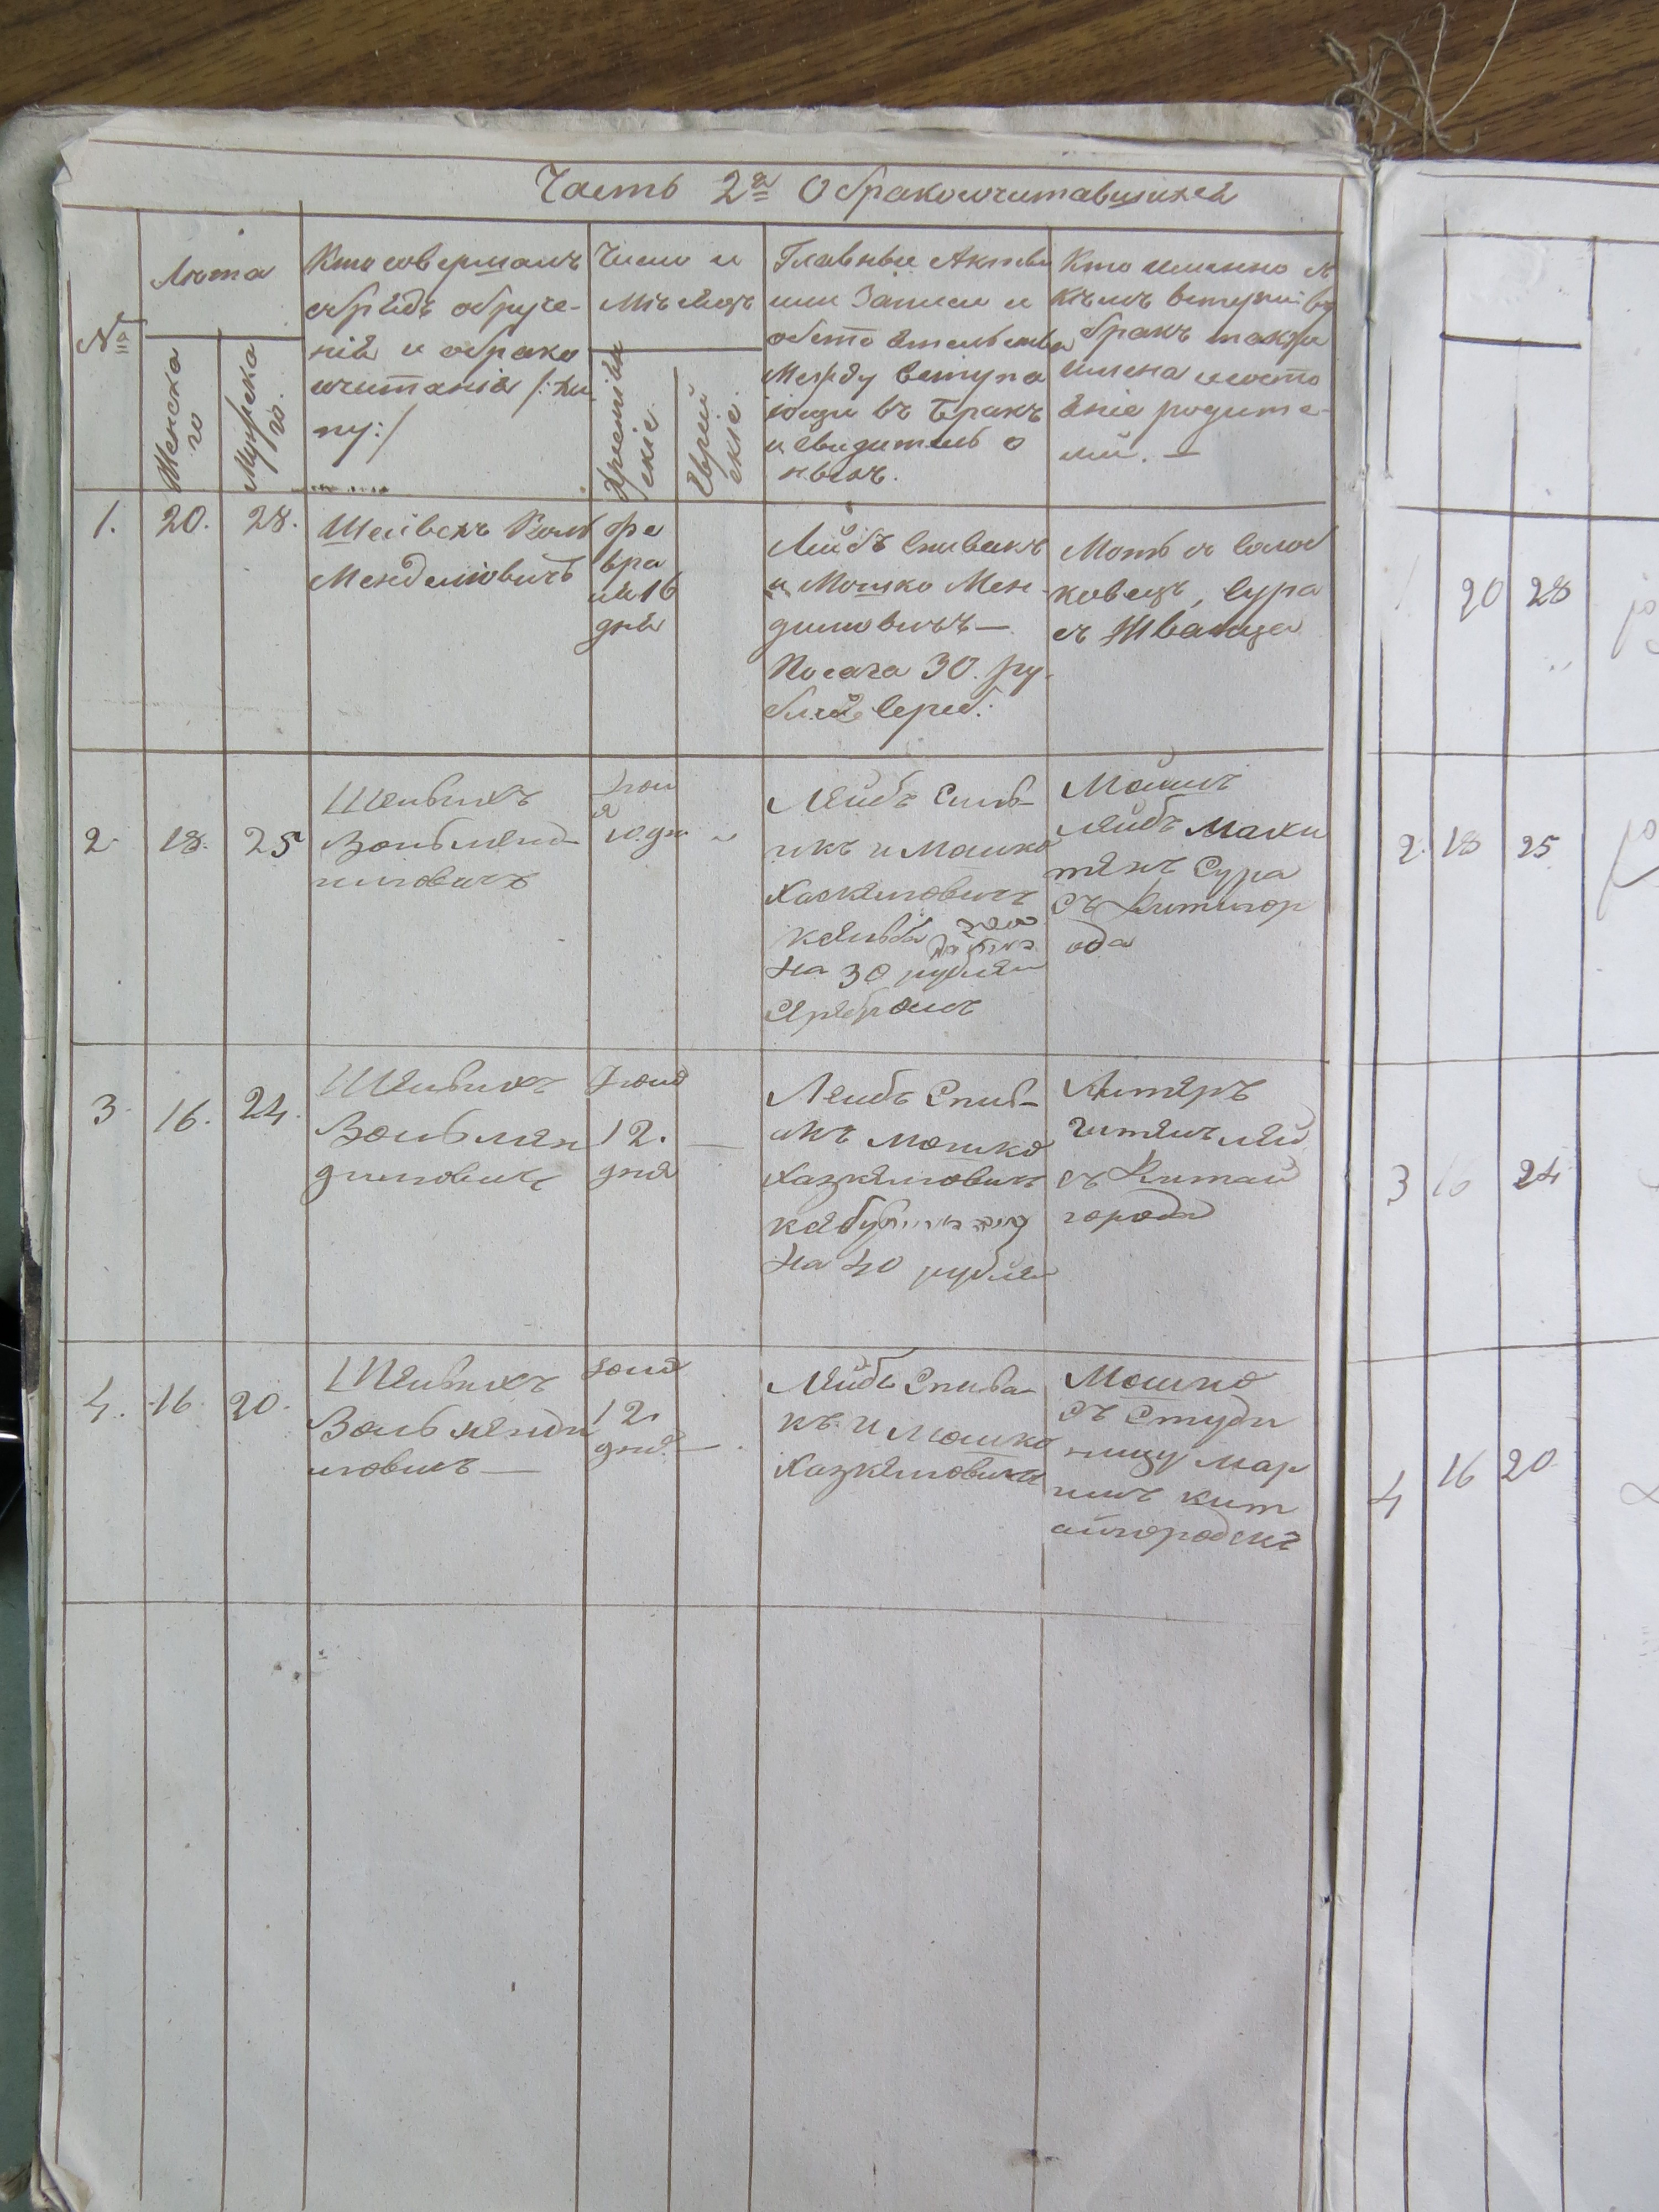 Часть 2я О бракосочитавшихся
№
Лѣта
Женска
го
Мужеска
го.
Кто совершалъ
обрядъ обруче-
нія и обрако
сочитанія /: ху
пу:/
Число и
Мѣсяцъ
Христіан
скіе.
Еврей
скіе.
Главные Акты
или Записи и
обстоятельства
Между вступа
ющи въ Бракъ
и свидѣтель о
нихъ.
Кто именно съ
кѣмъ вступилъ въ
бракъ также
имена и состо
яніе родите-
лей. —
1.
20.
28.
Шейвехъ Воль
Менделовичъ
Фе
вра
ля 16
дня
Лейбъ Спивакъ
и Мошко Мен-
диловичъ —
Посага 30. ру-
блей Сереб:
Моть съ Солоб
ковецъ, Сура
съ Жванца
2.
18.
25
Шевихъ
Вольменд-
иловичъ
Юни
я
10. дн
Лейбъ Спив-
акъ и Мошко
Хаскелювичъ
на 30 рублей
Серебромъ
Лейбъ
Сура
съ Китигор
ода
3.
16.
24.
Шевихъ
Воль мен
диловичъ
Юня
12.
дня
Лейбъ Спив-
акъ Мошко
Хазкелювичъ
на 40 рублей
съ Китай
города
4.
16.
20.
Шевихъ
Воль менди
ловичъ —
Юня
12.
дня. —
Лейбъ Спива-
къ и Мошко
Хазкелювичъ
Мошко
съ Студи
ницу Мар
кит
айгородскъ
20
28
2.
18
25
3
16
24
4
16
20